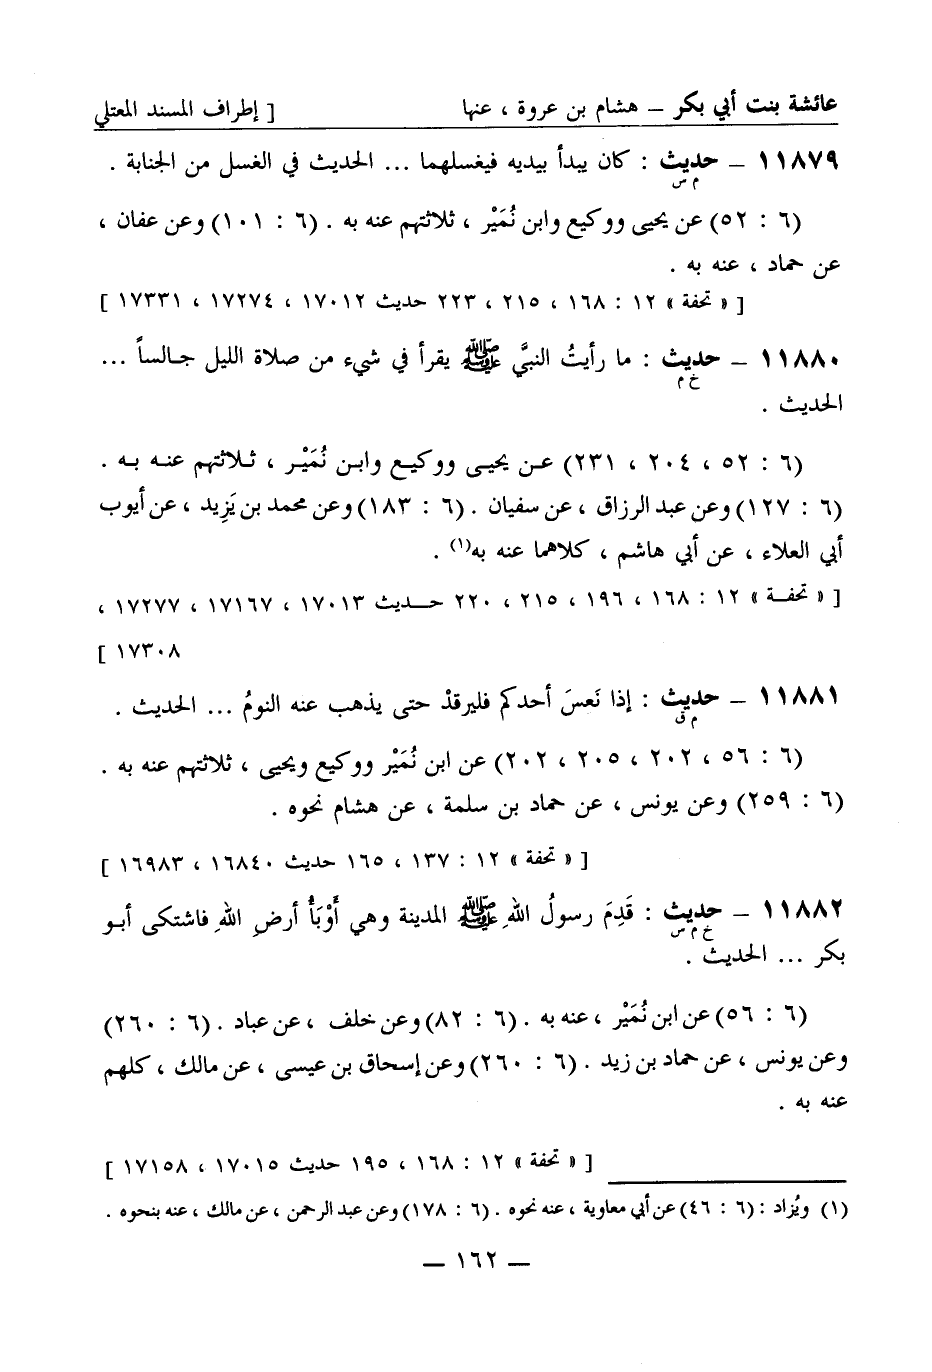 عائشة بنت أبي بكر – هشام بن عروة ، عنها [ إطراف المسند المعتلي
١١٨٧٩ – حديث : كان يبدأ بيديه فيغسلهما ... الحديث في الغسل من الجنابة .
م س
(٦ : ٥٢) عن يحيى ووكيع وابن نُمَيْر ، ثلاثتهم عنه به . (٦ : ١٠١) وعن عفان ،
عن حماد ، عنه به .
[ « تحفة » ١٢ : ١٦٨ ، ٢١٥ ، ٢٢٣ حديث ١٧٠١٢ ، ١٧٢٧٤ ، ١٧٣٣١ ]
١١٨٨٠ – حديث : ما رأيتُ النبيَّ ﷺ يقرأ في شيء من صلاة الليل جالساً ...
خ م
الحديث .
(٦ : ٥٢ ، ٢٠٤ ، ٢٣١) عن يحيى ووكيع وابن نُمَيْر ، ثلاثتهم عنه به .
(٦ : ١٢٧) وعن عبد الرزاق ، عن سفيان . (٦ : ١٨٣) وعن محمد بن يَزِيد ، عن أيوب
أبي العلاء ، عن أبي هاشم ، كلاهما عنه به(١) .
[ « تحفة » ١٢ : ١٦٨ ، ١٩٦ ، ٢١٥ ، ٢٢٠ حديث ١٧٠١٣ ، ١٧١٦٧ ، ١٧٢٧٧ ،
١٧٣٠٨ ]
١١٨٨١ – حديث : إذا نَعسَ أحدكم فليرقدْ حتى يذهب عنه النومُ ... الحديث .
م ق
(٦ : ٥٦ ، ٢٠٢ ، ٢٠٥ ، ٢٠٢) عن ابن نُمَيْر ووكيع ويحيى ، ثلاثتهم عنه به .
(٦ : ٢٥٩) وعن يونس ، عن حماد بن سلمة ، عن هشام نحوه .
[ « تحفة » ١٢ : ١٣٧ ، ١٦٥ حديث ١٦٨٤٠ ، ١٦٩٨٣ ]
١١٨٨٢ – حديث : قَدِمَ رسولُ اللهِ ﷺ المدينة وهي أَوْبَأُ أرضِ اللهِ فاشتكى أبو
خ م س
بكر ... الحديث .
(٦ : ٥٦) عن ابن نُمَيْر ، عنه به . (٦ : ٨٢) وعن خلف ، عن عباد . (٦ : ٢٦٠)
وعن يونس ، عن حماد بن زيد . (٦ : ٢٦٠) وعن إسحاق بن عيسى ، عن مالك ، كلهم
عنه به .
[ « تحفة » ١٢ : ١٦٨ ، ١٩٥ حديث ١٧٠١٥ ، ١٧١٥٨ ]
(١) ويُزاد : (٦ : ٤٦) عن أبي معاوية ، عنه نحوه . (٦ : ١٧٨) وعن عبد الرحمن ، عن مالك ، عنه بنحوه .
– ١٦٢ –